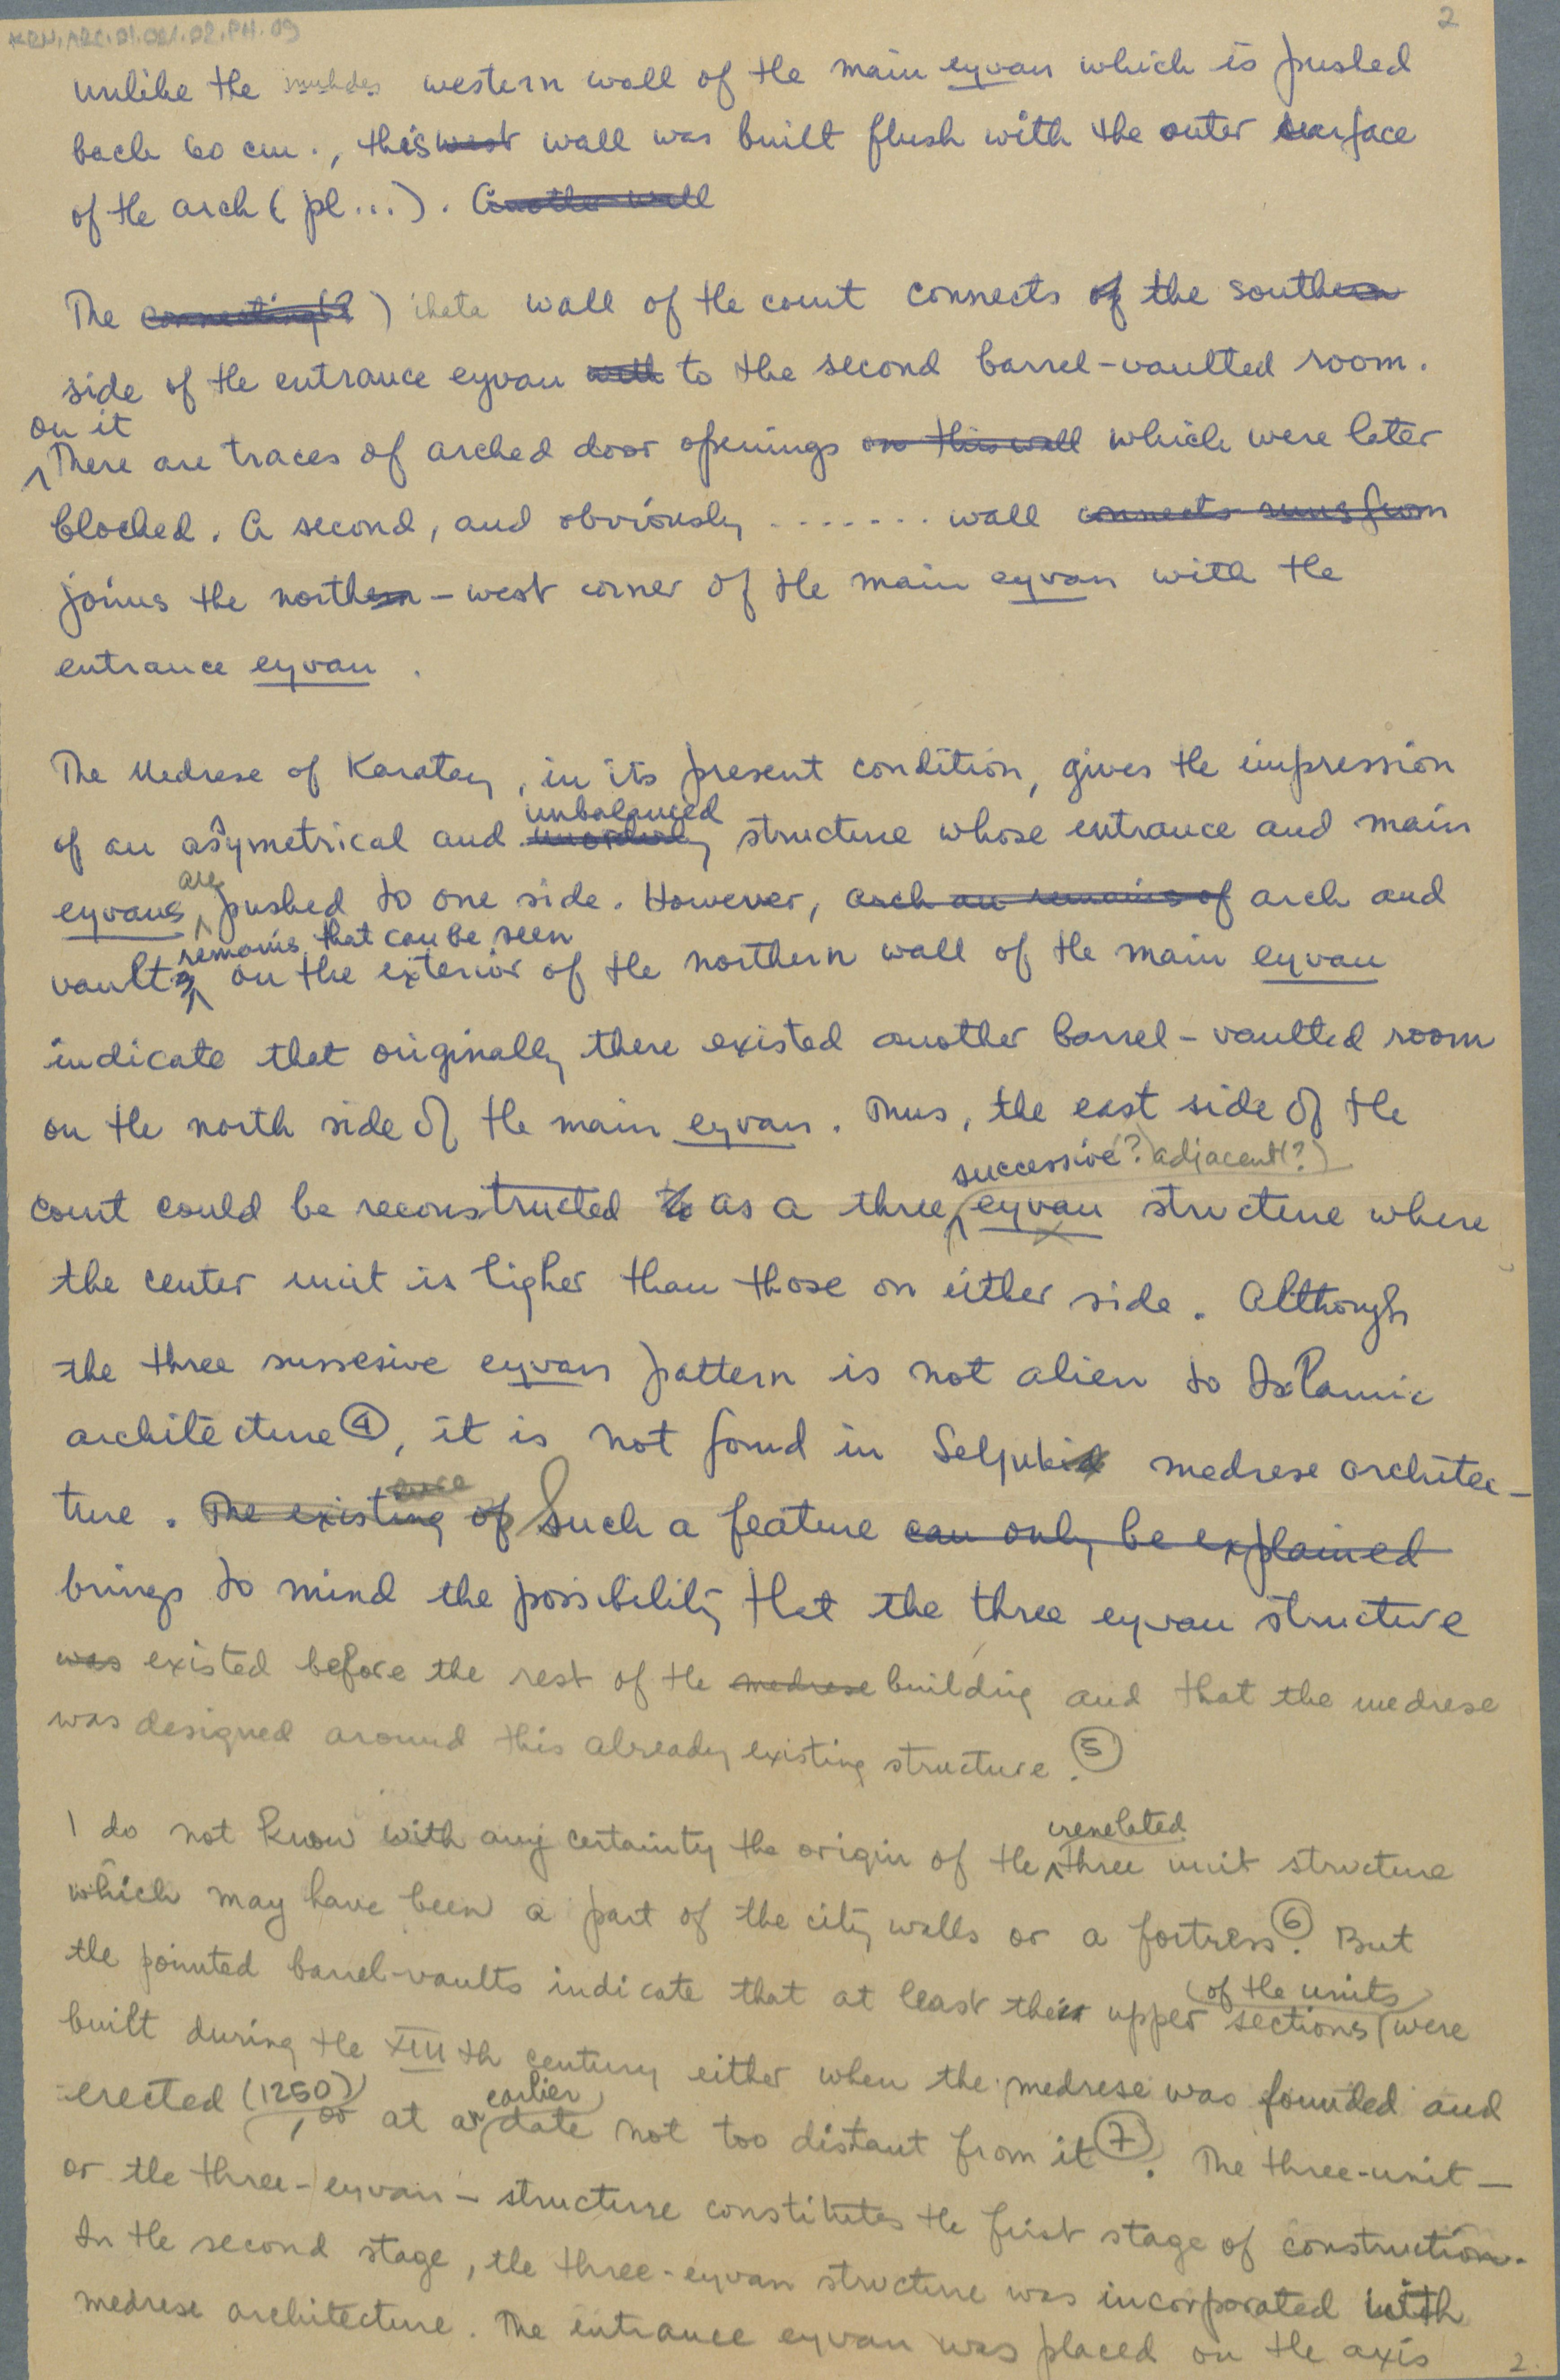 KRN.ARC.01.021.02.PH.09
2
unlike the western wall of the main eyvan which is pushed
back 60 cm., this west wall was built flush with the outer surface
of the arch (pl...). Another wall
The connecting(?) ihata wall of the court connects of the southern
side of the entrance eyvan with to the second barrel-vaulted room.
on it
There are traces of arched door openings on this wall which were later
blocked. A second, and obviously ....... wall connects runs from
joins the northern-west corner of the main eyvan with the
entrance eyvan.
The Medrese of Karatay, in its present condition, gives the impression
unbalanced
of an asymetrical and structure whose entrance and main
are
eyvans pushed to one side. However, arch an remains of arch and
remains that can be seen
vaults on the exterior of the northern wall of the main eyvan
indicate that originally there existed another barrel-vaulted room
on the north side of the main eyvan. Thus, the east side of the
successive(?) adjacent(?)
court could be reconstructed to as a three eyvan structure where
the center unit is higher than those on either side. Although
the three sussesive eyvan pattern is not alien to Islamic
architecture (4), it is not found in Seljukid medrese architec-
ence
ture. The existing of Such a feature can only be explained
brings to mind the possibility that the three eyvan structure
was existed before the rest of the medrese building and that the medrese
was designed around this already existing structure. (5)
crenelated
I do not know with any certainty the origin of the three unit structure
which may have been a part of the city walls or a fortress (6). But
of the units
the pointed barrel-vaults indicate that at least their upper sections were
built during the XIII th century either when the medrese was founded and
earlier
erected (1250), or at an date not too distant from it (7). The three-unit-
or the three-eyvan-structure constitutes the first stage of construction.
In the second stage, the three-eyvan structure was incorporated with
medrese architecture. The entrance eyvan was placed on the axis
2